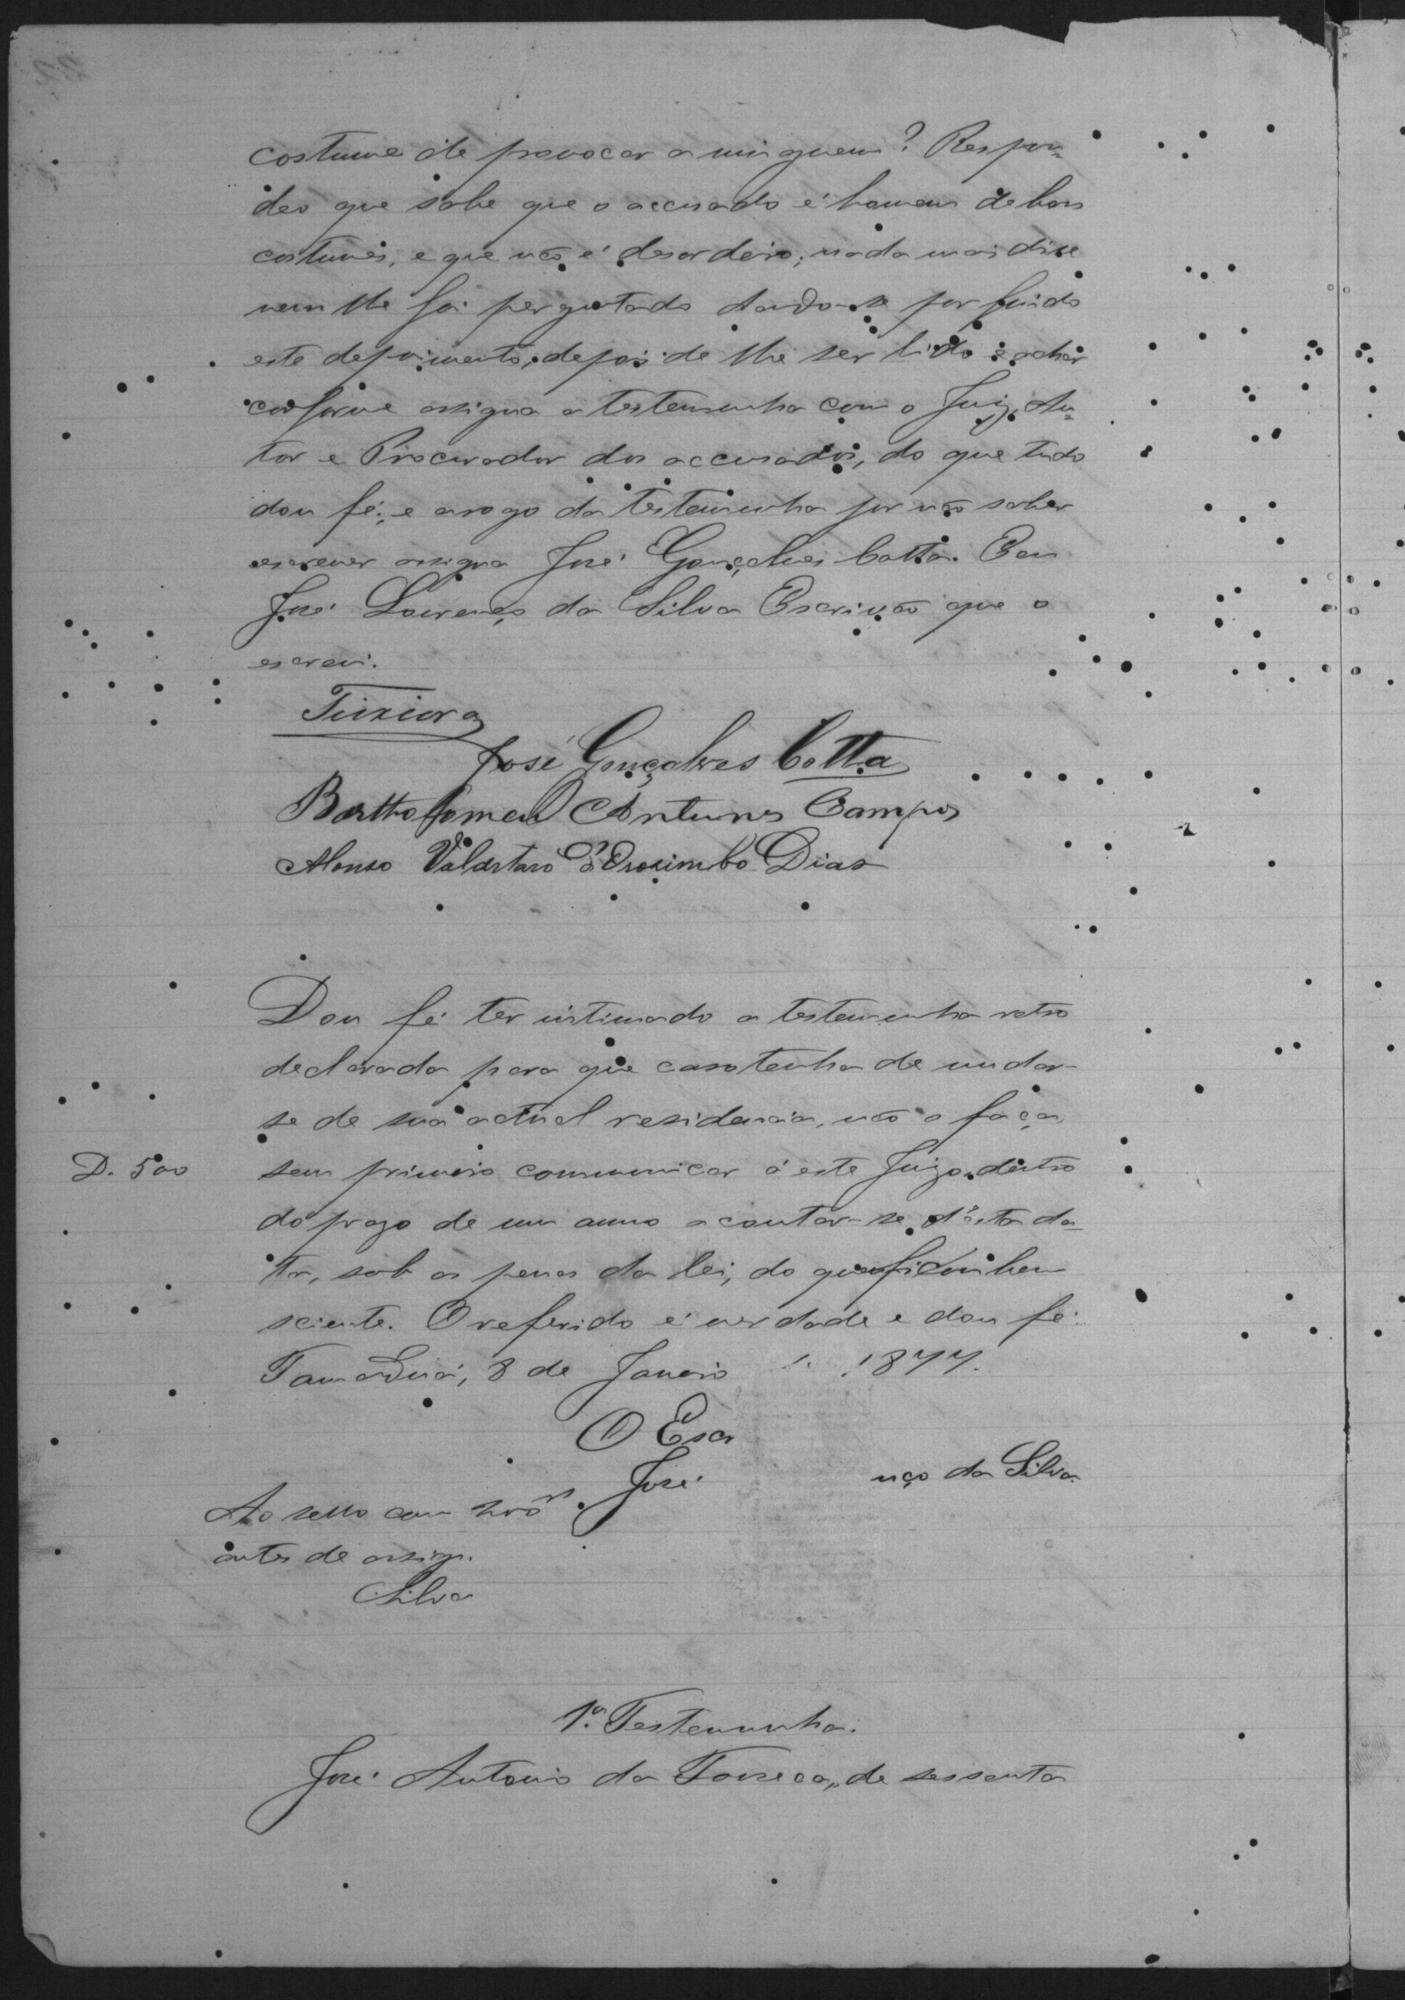 costume de provocar a ninguem? Respon-
deo que sabe que o accusado é homem de bons
costumes, e que não é desordeiro; nada mais disse
nem lhe foi perguntado dando-se por findo
este depoimento, depois de lhe ser lido e achar
conforme assigna a testemunha com o Juiz, Au-
tor e Procurador dos accusados, do que tudo
dou fé; e a rogo da testemunha por não saber
escrever assigna José Gonçalves Cotta. Eeu
José Lourenço da Silva Escrivão que o
escrevi.
Teixeira
José Gonçalves Cotta
Bartholomeu Antunes Campos
Afonso Dias
Dou fé ter intimado a testemunha retro
declarada para que caso tenha de mudar-
se de sua actual residencia, não o faça
sem primeiro communicar á este Juizo, dentro
D. 500
do prazo de um anno a contar-se d'esta da-
ta, sob as penas da lei, do que ficou bem
sciente. O referido é verdade e dou fé.
Tamanduá, 8 de Janeiro 1877.
O Escr
José nço da Silva
Ao sello com 200 rs
antes de assign.
Silva
1ª Testemunha.
José Antonio da Fonseca, de sessenta